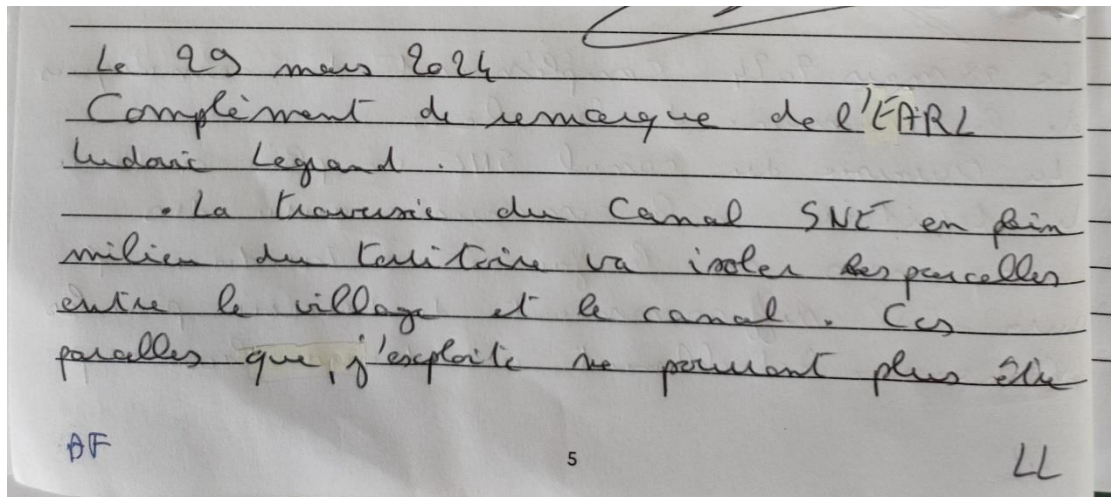 Le 29 mars 2024
Complèment de remarque de l'EARL
Ludovic Legrand.
. La traversée du Canal SNE en plein
milieu du territoire va isoler les parcelles
entre le village et le canal. Ces
parcelles que, j'exploite ne pourront plus être
AF 5 LL